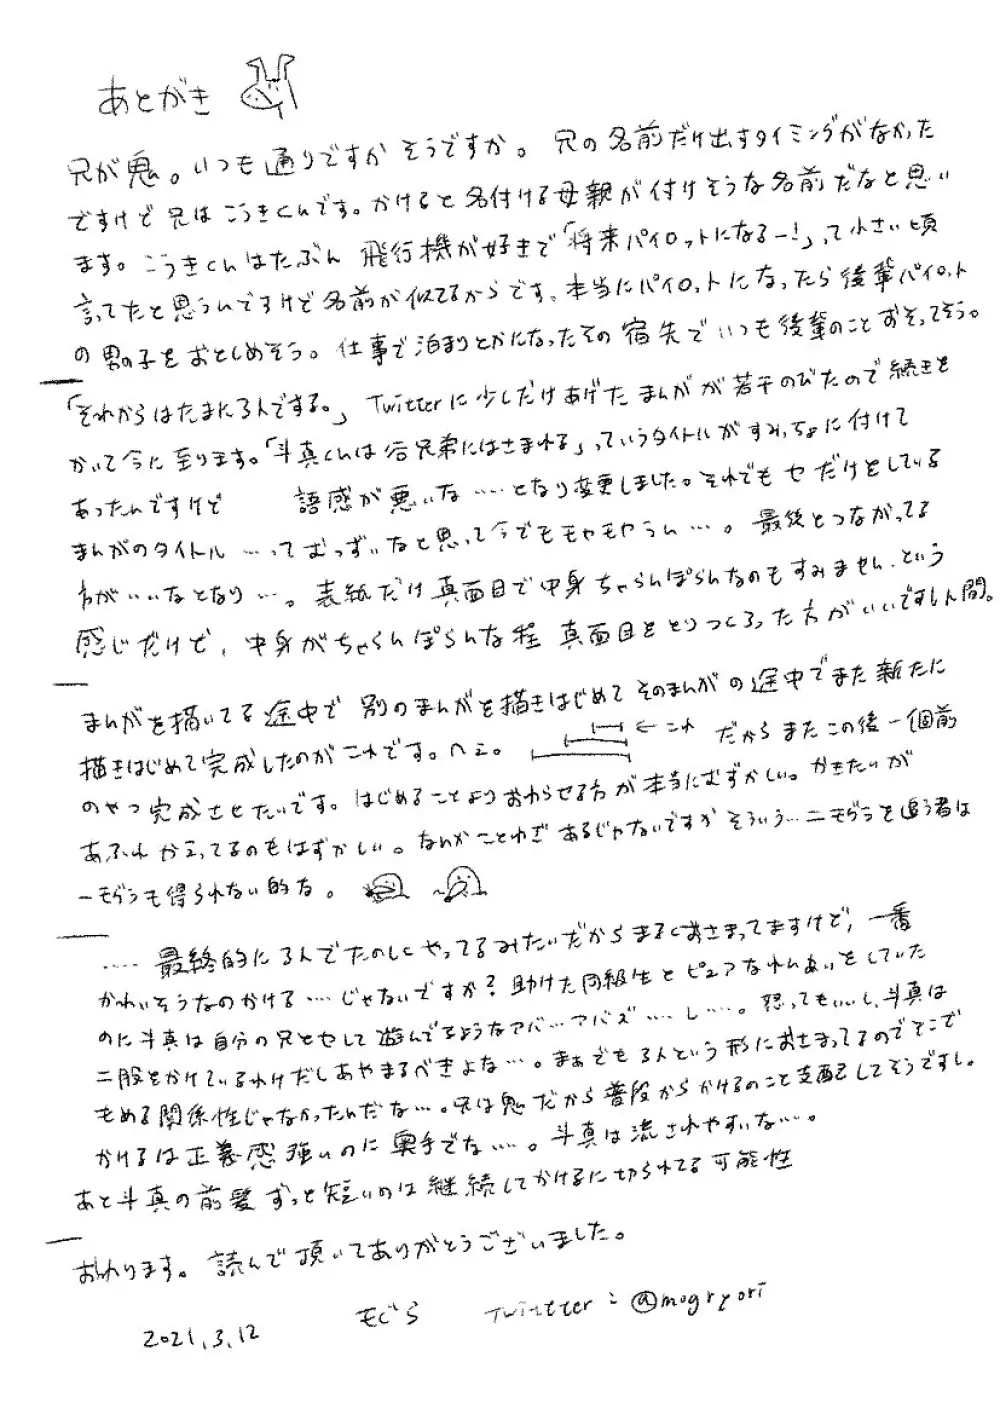 あとがき
兄が鬼。いつも通りですかそうですか。兄の名前だけ出すタイミングがなかった
ですけど兄はこうきくんです。かけると名付ける母親が付けそうな名前だなと思い
ます。こうきくんはたぶん飛行機が好きで「将来パイロットになるー!」って小さい頃
言ってたと思うんですけど名前が似てるからです、本当にパイロットになったら後輩パイロット
の男の子をおとしめそう。仕事で泊まりとかになったその宿先でいつも後輩のことおそってそう。
「それからはたまに3人でする。」Twitterに少しだけあげたまんがが若干のびたので続きを
かいて今に至ります。「斗真くんは谷兄弟にはさまれる」っていうタイトルがすみっちょに付けて
あったんですけど 語感が悪いな……となり変更しました。それでもセだけをしている
まんがのタイトル…ってむっずいなと思って今でももやもやうん…。最後とつながってる
方がいいなとなり…。表紙だけ真面目で中身ちゃらんぽらんなのもすみません、という
感じだけど、中身がちゃらんぽらんな程 真面目をとりつくろった方がいいですし人間。
まんがを描いてる途中で 別のまんがを描きはじめてそのまんがの途中でまた新たに
描きはじめて完成したのがこれです。へェ。 ←これ だからまたこの後一個前
のやつ完成させたいです。はじめることよりおわらせる方が本当にむずかしい。かきたいが
あふれかえってるのもはずかしい。なんかことわざあるじゃないですかそういう…二モグラを追う者は
一モグラも得られない的な。
……最終的に3人でたのしくやってるみたいだからまるくおさまってますけど、一番
かわいそうなのかける…じゃないですか?助けた同級生とピュアなれんあいをしていた
のに斗真は自分の兄とセして遊んでるようなアバ…アバズ……し……。怒ってもいいし、斗真は
二股をかけているわけだしあやまるべきよな…。まぁでも3人という形におさまってるのでそこで
もめる関係性じゃなかったんだな…。兄は鬼だから普段からかけるのこと支配してそうですし。
かけるは正義感強いのに奥手でな…。斗真は流されやすいな…。
あと斗真の前髪ずっと短いのは継続してかけるに切られてる可能性
おわります。読んで頂いてありがとうございました。
2021.3.12 もぐら Twitter:@mogryori